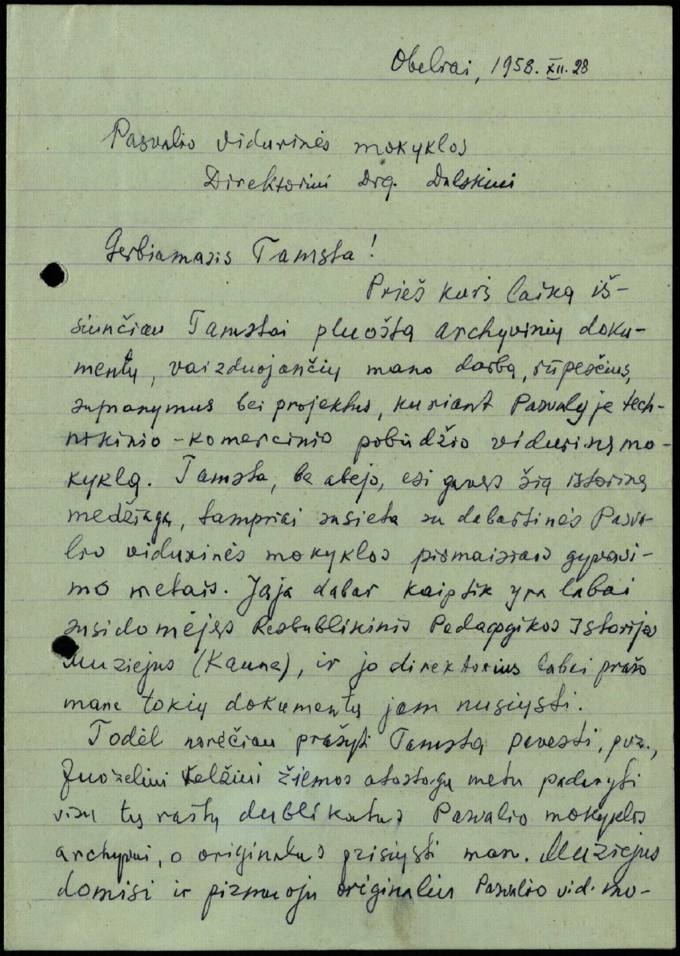 Obeliai, 1958.XII.28
Pasvalio vidurinės mokyklos
Direktoriui Drg. Dulskiui
Gerbiamasis Tamsta!
Prieš kurį laiką iš-
siunčiau Tamstai pluoštą archyvinių doku-
mentų, vaizduojančių mano darbą, rūpesčius,
sumanymus bei projektus, kuriant Pasvalyje tech-
nikinio-komercinio pobūdžio vidurinę mo-
kyklą. Tamsta, be abejo, esi gavęs šią istorinę
medžiagą, tampriai susietą su dabartinės Pasva-
lio vidurinės mokyklos pirmaisiais gyvavi-
mo metais. Jąja dabar kaip tik yra labai
susidomėjęs Respublikinis Pedagogikos Istorijos
Muziejus (Kaune), ir jo direktorius labai prašo
mane tokių dokumentų jam nusiųsti.
Todėl norėčiau prašyti Tamstą pavesti, pvz.,
žiemos atostogų metu padaryti
visų tų raštų dublikatus Pasvalio mokyklos
archyvui, o originalus prisiųsti man. Muziejus
domisi ir pirmuoju originaliu Pasvalio vid. mo-